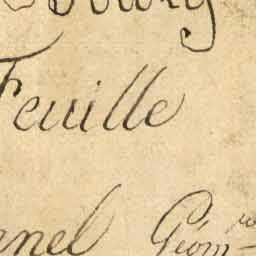 Feuille
nel Géom.re